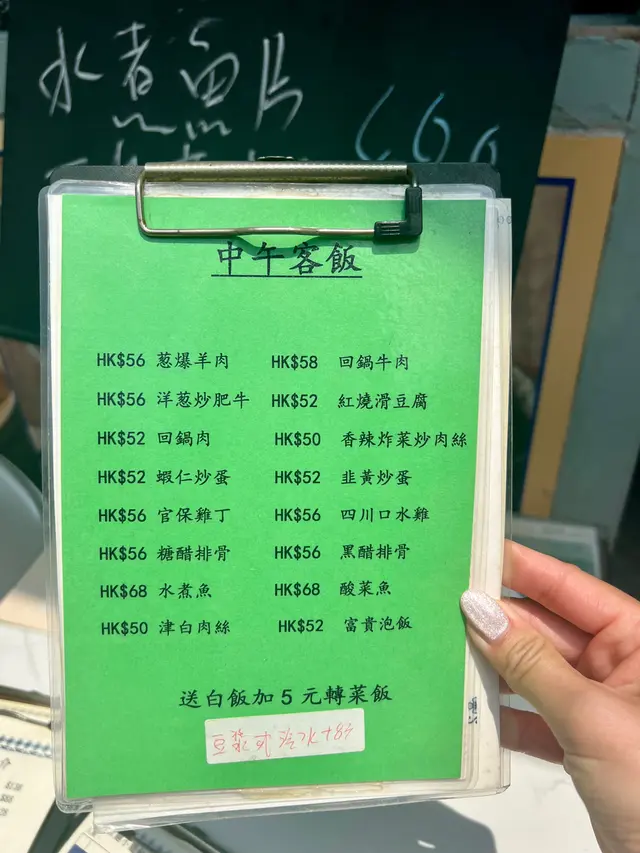 水煮魚片
中午客飯
HK$56 葱爆羊肉 HK$58 回鍋牛肉
HK$56 洋葱炒肥牛 HK$52 紅燒滑豆腐
HK$52 回鍋肉 HK$50 香辣炸菜炒肉絲
HK$52 蝦仁炒蛋 HK$52 韭黃炒蛋
HK$56 官保雞丁 HK$56 四川口水雞
HK$56 糖醋排骨 HK$56 黑醋排骨
HK$68 水煮魚 HK$68 酸菜魚
HK$50 津白肉絲 HK$52 富貴泡飯
送白飯加 5 元轉菜飯
豆漿